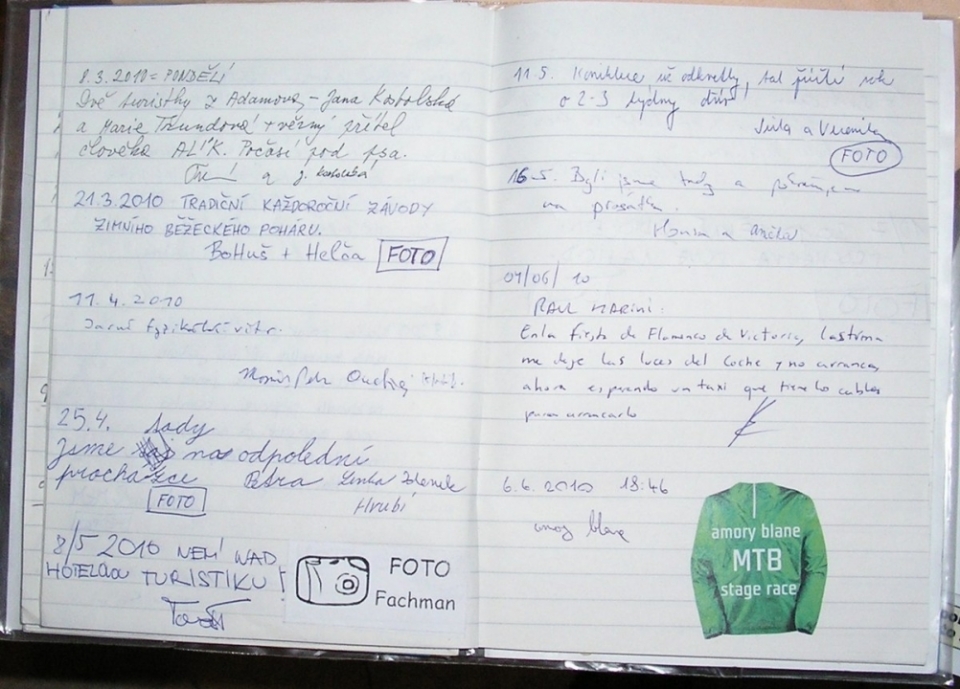 8.3.2010 = PONDĚLÍ
Dvě turistky z Adamova - Jana Kosolská
a Marie Trundová + věrný přítel
člověka ALÍK. Počasí pod psa.
a J.
21.3.2010 TRADIČNÍ KAŽDOROČNÍ ZÁVODY
ZIMNÍHO BĚŽECKÉHO POHÁRU.
BoHuš + Helča FOTO
11.4.2010
Jarní fyzikální
Ondřej
25.4. tady
Jsme na odpolední
procházce Petra Lenka Zdenek
Hrubí
FOTO
8/5 2010 NENÍ NAD
HOTELOU TURISTIKU!
FOTO
Fachman
11.5. Koniklece už odkvetly, tak příští rok
o 2-3 týdny dřív
Jirka a Veronika
FOTO
16.5. Byli jsme tady a pokračujeme
na
Honza a Anička
01/06/10
RAUL MARINI.
En la fiesta de Flamenco de Victoria, lastima
me deje las luces del coche y no arranca,
ahora esperando un taxi que tiene los cables
para arrancarlo
6.6.2010 18:46
amory blane
amory blane
MTB
stage race